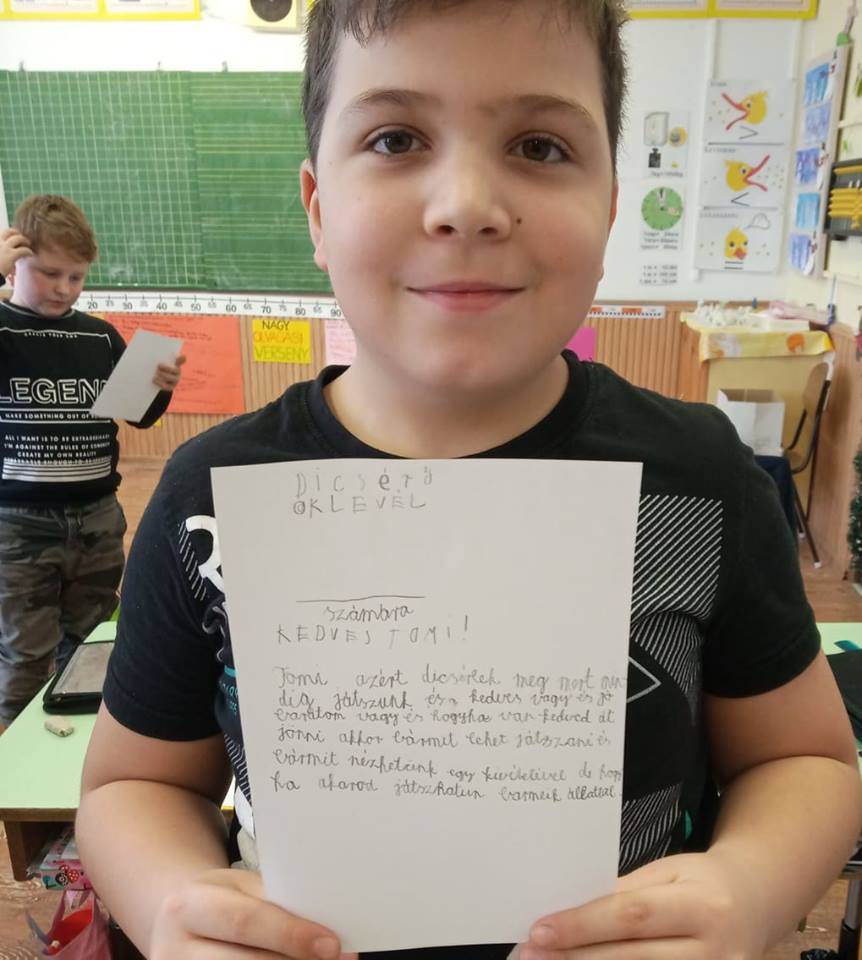 DiCSéRő
OKLEVÉL
számára
KEDVES TOMi!
Tomi azért dicsérlek meg mert min
dig játszunk és kedves vagy és jó
barátom vagy és hogyha van kedved át
jönni akkor bármit lehet játszani és
bármit nézhetünk egy kivételével de hogy
ha akarod játszhatun
LEGEN
MAKE SOMETHING OUT OF
ALL I WANT IS TO BE EXTRAORDINARY
I'M AGAINST THE RULES OF
CREATE MY OWN REALITY
NAGY
OLVASÁSI
VERSENY
20 30 40 50 60 70 80 90